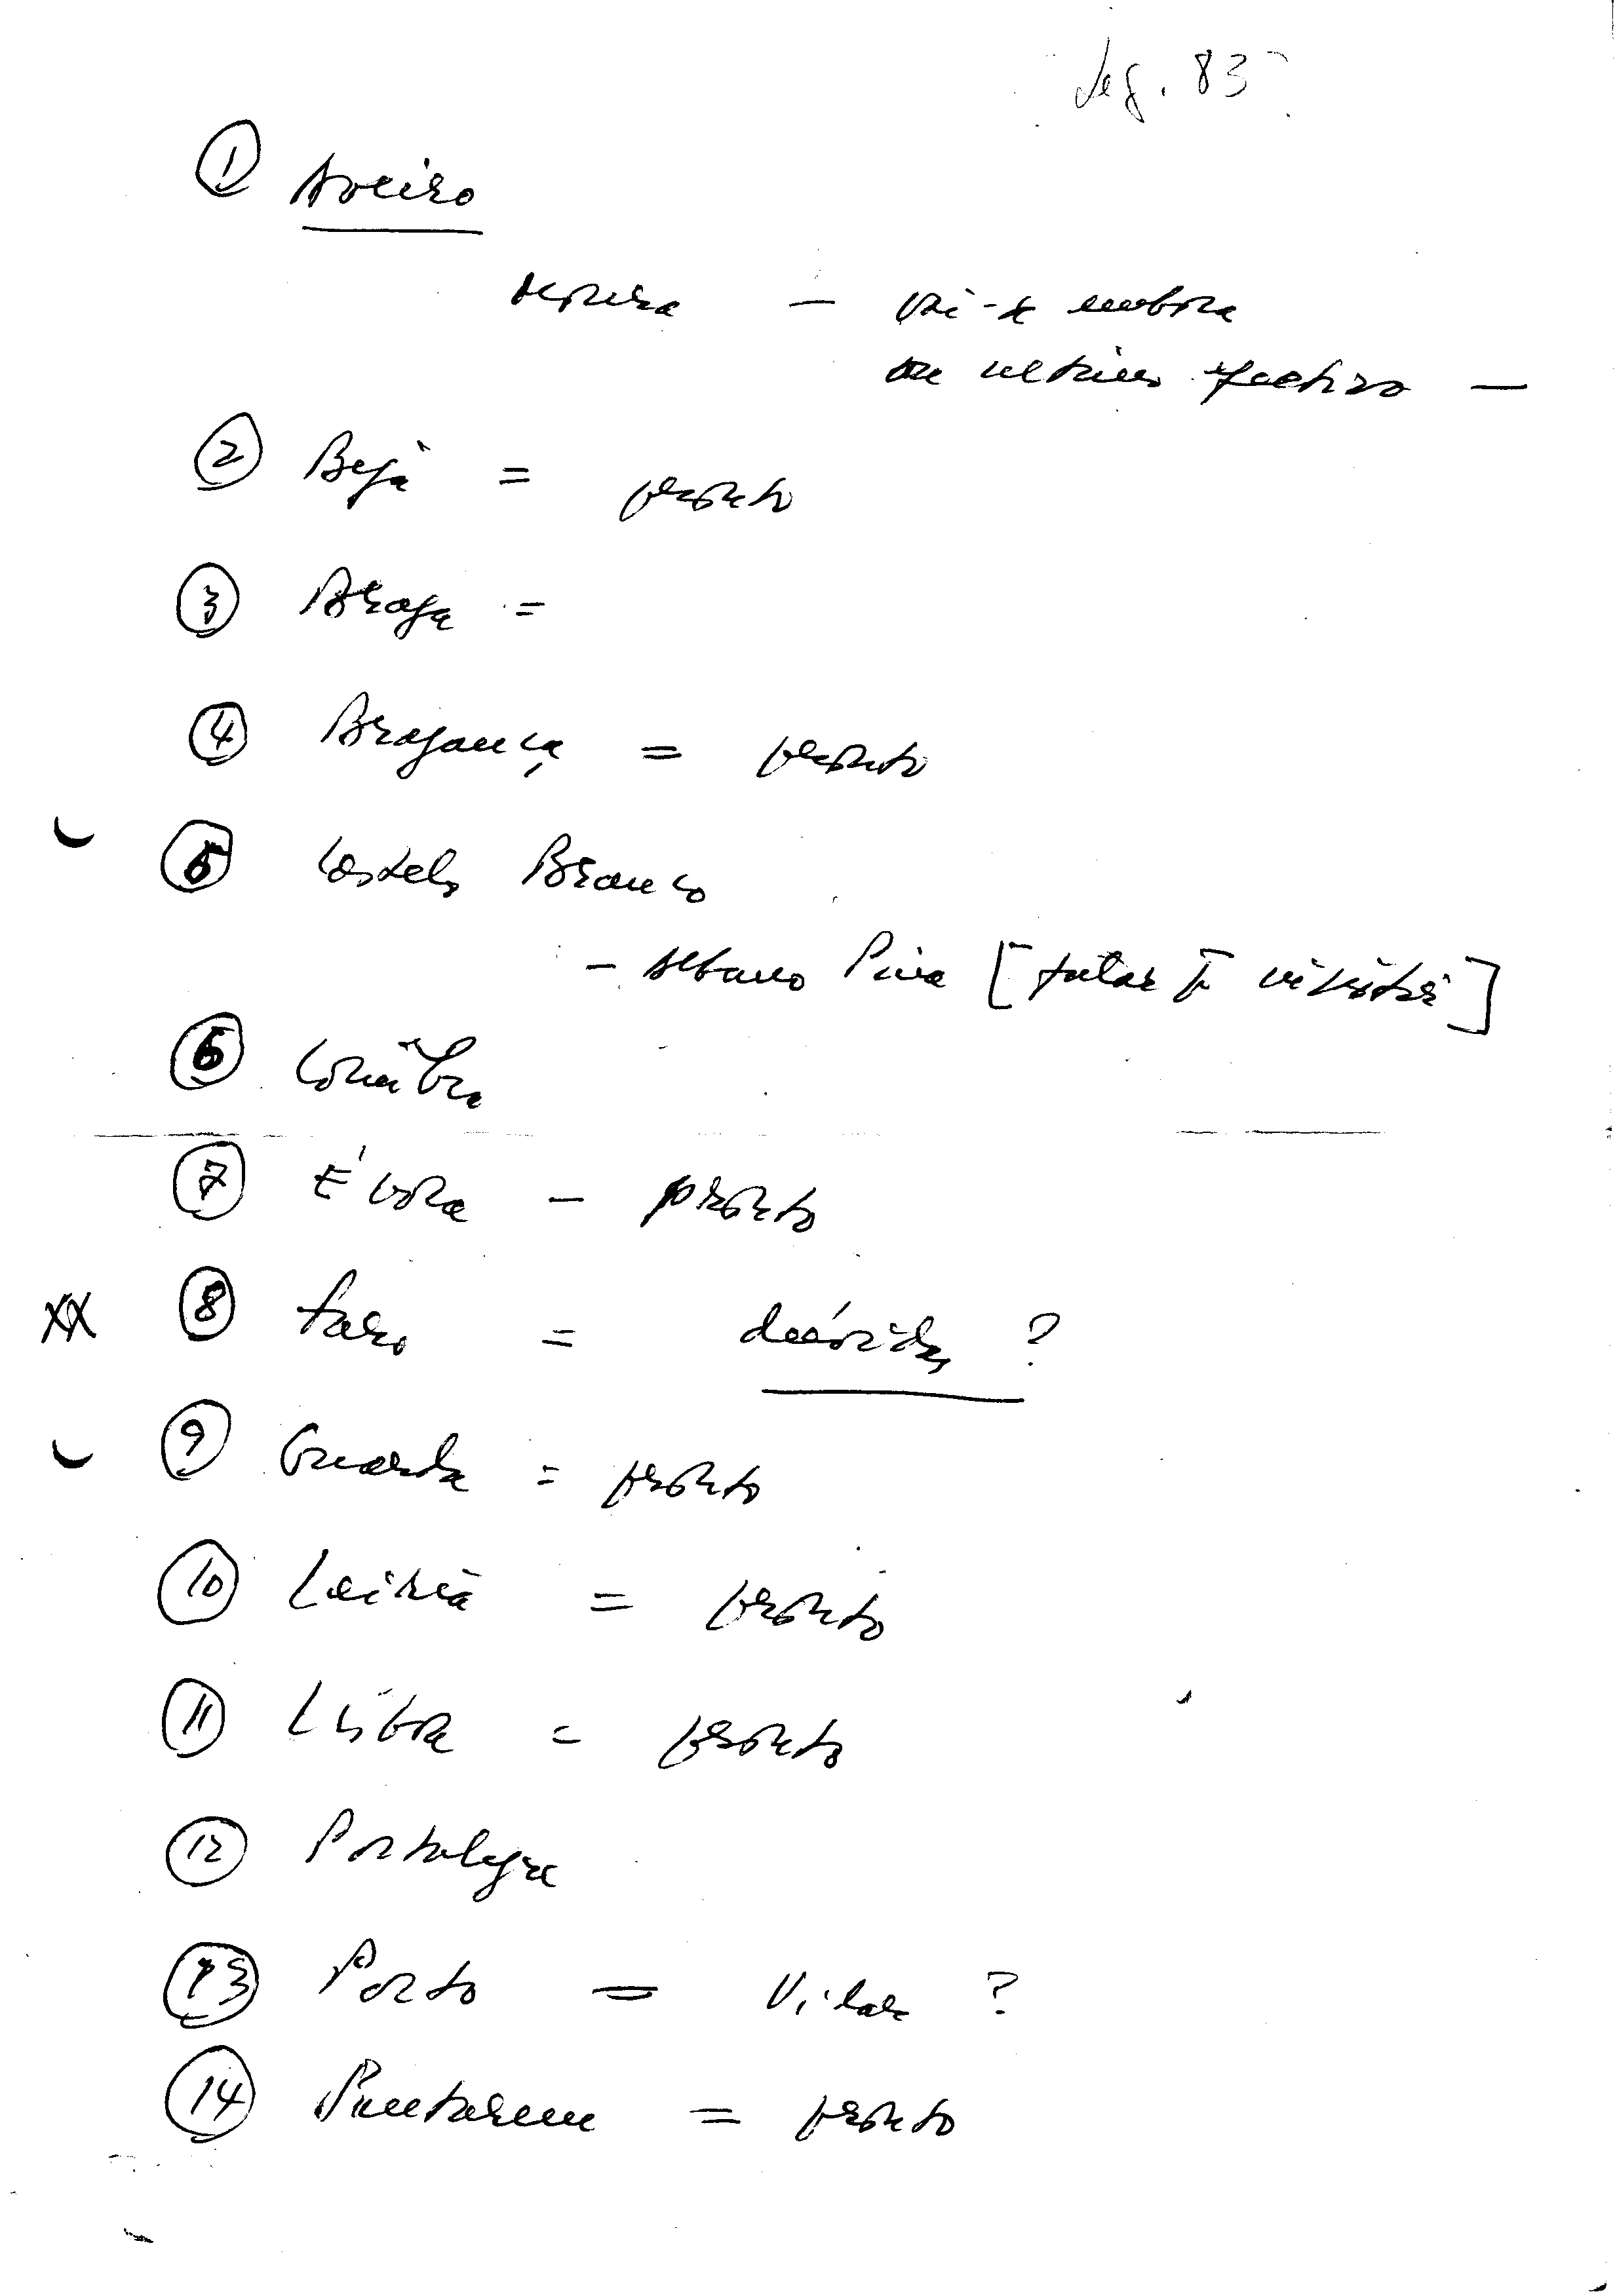 Leg. 83
① Aveiro
— vai-se embora
ou ultimo efectivo —
② Beja = pronto
③ Braga =
④ Bragança = pronto
⑤ Castelo Branco
- Albano Pina [falar]
⑥ Coimbra
⑦ Évora - pronto
XX ⑧ Faro = decidido ?
⑨ Guarda = pronto
⑩ Leiria = pronto
⑪ Lisboa = pronto
⑫ Portalegre
⑬ Porto = Vilar ?
⑭ Santarem = pronto